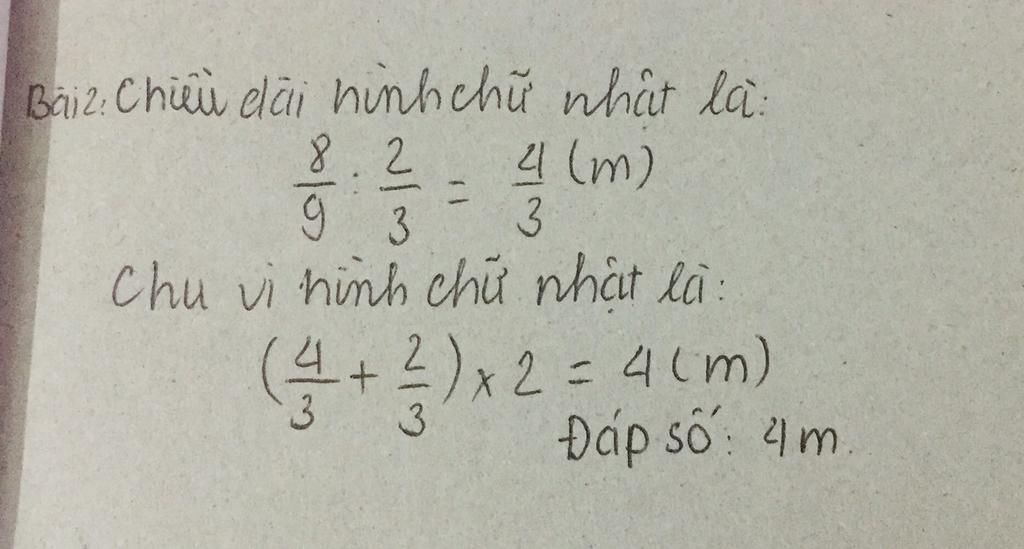 Bài 2: Chiều dài hình chữ nhật là:
8/9 : 2/3 = 4/3 (m)
Chu vi hình chữ nhật là:
(4/3 + 2/3) x 2 = 4 (m)
Đáp số: 4m.